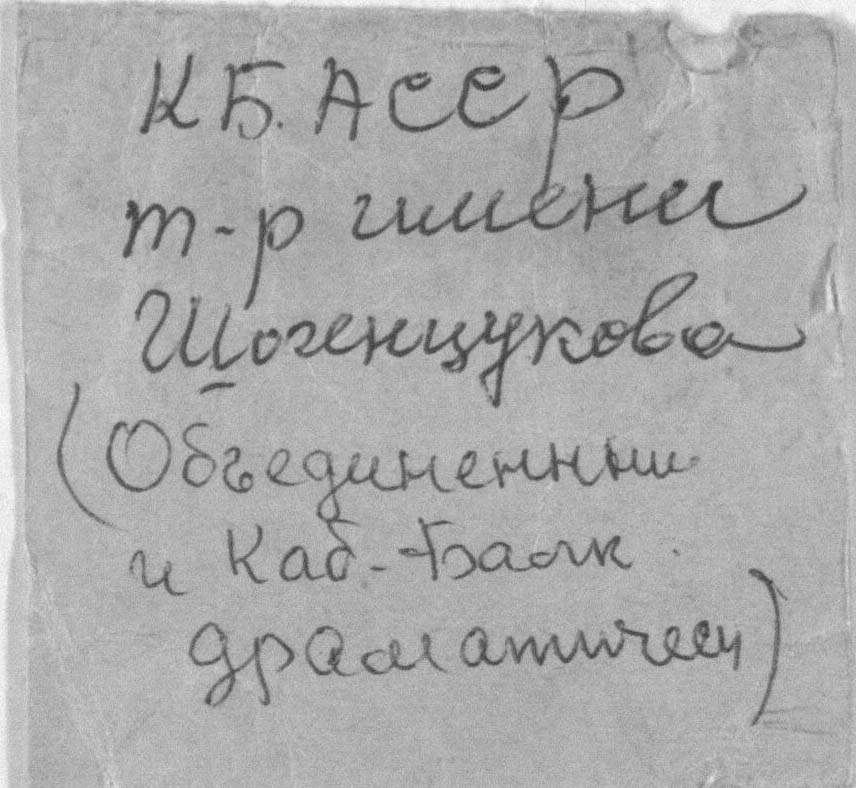 КБ. АССР
т-р имени
Шогенцукова
(Объединенный
и Каб-Балк.
драматическ)